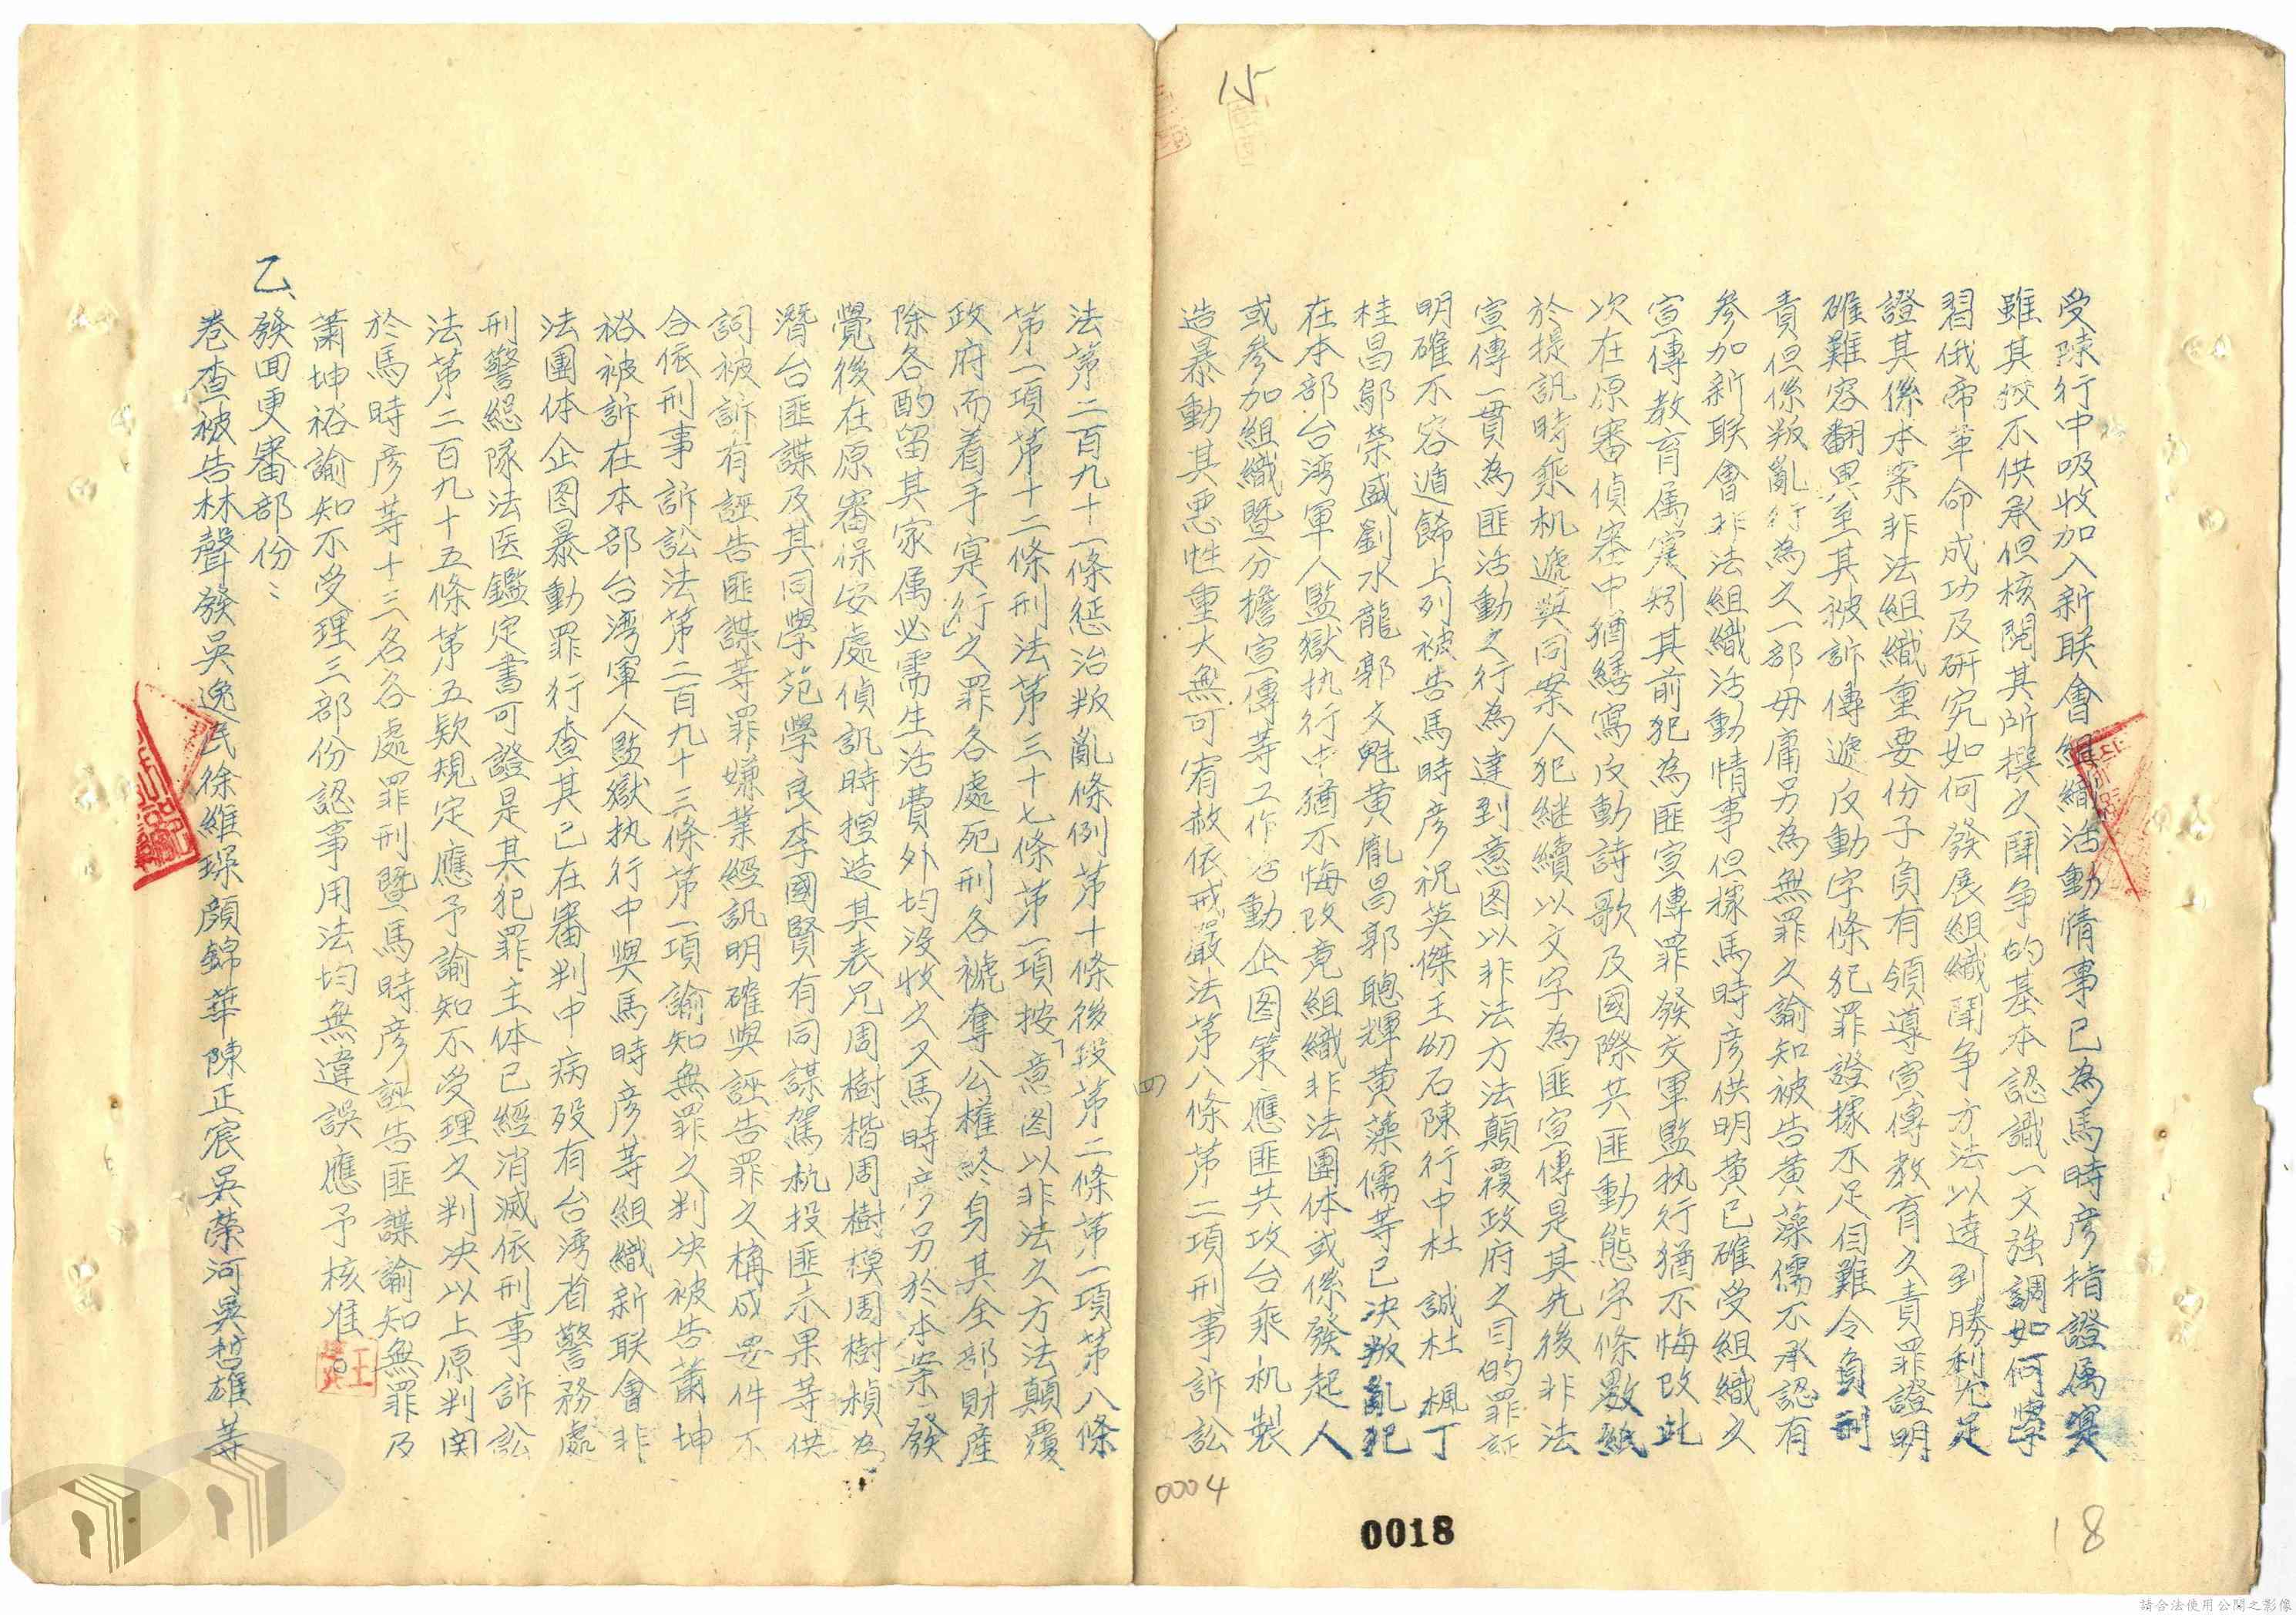 15
受陳行中吸收加入新联會組織活動情事已為馬時彦指證属寔
雖其狡不供承但核閱其所撰之鬪争的基本認識一文強調如何學
習俄帝革命成功及研究如何發展組織鬪争方法以達到勝利尤足
證其係本案非法組織重要份子負有領導宣傳教育之責罪證明
確難容翻異至其被訴傳遞反動字條犯罪證據不足自難令負刑
責但係叛亂行為之一部毋庸另為無罪之諭知被告黃藻儒不承認有
參加新联會非法組織活動情事但據馬時彦供明黃已確受組織之
宣傳教育属寔矧其前犯為匪宣傳罪發交軍監执行猶不悔改此
次在原審偵審中猶繕寫反動詩歌及國際共匪動態字條數紙
於提訊時乘机遞與同案人犯継續以文字為匪宣傳是其先後非法
宣傳一貫為匪活動之行為達到意图以非法方法顛覆政府之目的罪証
明確不容遁餙上列被告馬時彦祝英傑王幼石陳行中杜誠杜楓丁
桂昌鄔荣盛劉水龍郭文魁黄胤昌郭聰輝黄藻儒等已决叛亂犯
在本部台湾軍人監獄执行中猶不悔改竟組織非法團体或係發起人
或參加組織暨分擔宣傳等工作名動企图策應匪共攻台乘机製
造暴動其悪性重大無可宥赦依戒嚴法第八條第二項刑事訴訟
四
0004
0018
18
法第二百九十一條惩治叛亂條例第十條後段第二條第一項第八條
第一項第十二條刑法第三十七條第一項按「意图以非法之方法顛覆
政府而着手寔行」之罪各處死刑各褫奪公權終身其全部財産
除各酌留其家属必需生活費外均没收之又馬時彦另於本案發
覺後在原審保安處偵訊時揑造其表兄周樹楷周樹模周樹楨為
潛台匪諜及其同學范學良李國賢有同謀駕机投匪示果等供
詞被訴有誣告匪諜等罪嫌業經訊明確與誣告罪之構成要件不
合依刑事訴訟法第二百九十三條第一項諭知無罪之判决被告蕭坤
裕被訴在本部台湾軍人監獄执行中與馬時彦等組織新联會非
法團体企图暴動罪行查其已在審判中病殁有台湾省警務處
刑警緫隊法医鑑定書可證是其犯罪主体已經消滅依刑事訴訟
法第二百九十五條第五欵規定應予諭知不受理之判决以上原判関
於馬時彦等十三名各處罪刑暨馬時彦誣告匪諜諭知無罪及
蕭坤裕諭知不受理三部份認事用法均無違誤應予核准。
乙、發回更審部份：
卷查被告林聲發吳逸民徐維琛顔錦華陳正宸吳荣河吳哲雄等
請合法使用公開之影像